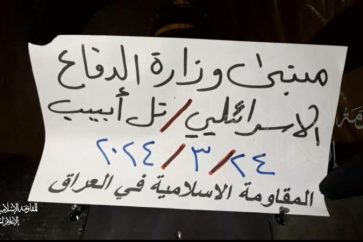 مبنى وزارة الدفاع
الاسرائيلي/تل أبيب
٢٠٢٤/٣/٢٤
المقاومة الاسلامية في العراق